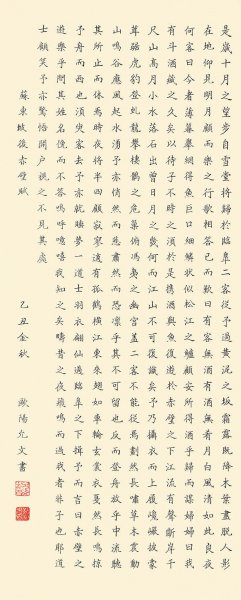 是歲十月之望步自雪堂將歸於臨臯二客從予過黃泥之坂霜露既降木葉盡脫人影
在地仰見明月顧而樂之行歌相答已而歎曰有客無酒有酒無肴月白風清如此良夜
何客曰今者薄暮舉網得魚巨口細鱗狀似松江之鱸顧安所得酒乎歸而謀諸婦婦曰我
有斗酒藏之久矣以待子不時之須於是攜酒與魚復遊於赤壁之下江流有聲斷岸千
尺山高月小水落石出曾日月之幾何而江山不可復識矣予乃攝衣而上履巉巖披蒙
茸踞虎豹登虬龍攀棲鶻之危巢俯馮夷之幽宮蓋二客不能從焉劃然長嘯草木震動
山鳴谷應風起水湧予亦悄然而悲肅然而恐凜乎其不可留也反而登舟放乎中流聽
其所止而休焉時夜將半四顧寂寥適有孤鶴橫江東來翅如車輪玄裳縞衣戛然長鳴掠
予舟而西也須臾客去予亦就睡夢一道士羽衣翩仙過臨臯之下揖予而言曰赤壁之
遊樂乎問其姓名俛而不答嗚呼噫嘻我知之矣疇昔之夜飛鳴而過我者非子也耶道
士顧笑予亦驚悟開戶視之不見其處
蘇東坡後赤壁賦 乙丑金秋 歐陽允文書